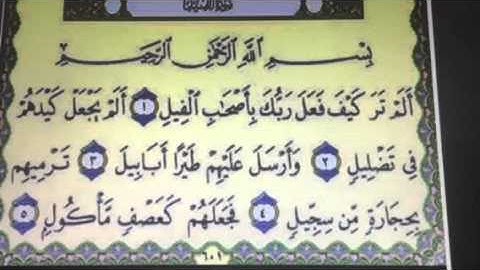 سورة الفيل
بِسْمِ اللَّهِ الرَّحْمَٰنِ الرَّحِيمِ
أَلَمْ تَرَ كَيْفَ فَعَلَ رَبُّكَ بِأَصْحَابِ الْفِيلِ ١ أَلَمْ يَجْعَلْ كَيْدَهُمْ
فِي تَضْلِيلٍ ٢ وَأَرْسَلَ عَلَيْهِمْ طَيْرًا أَبَابِيلَ ٣ تَرْمِيهِم
بِحِجَارَةٍ مِّن سِجِّيلٍ ٤ فَجَعَلَهُمْ كَعَصْفٍ مَّأْكُولٍ ٥
٦٠١